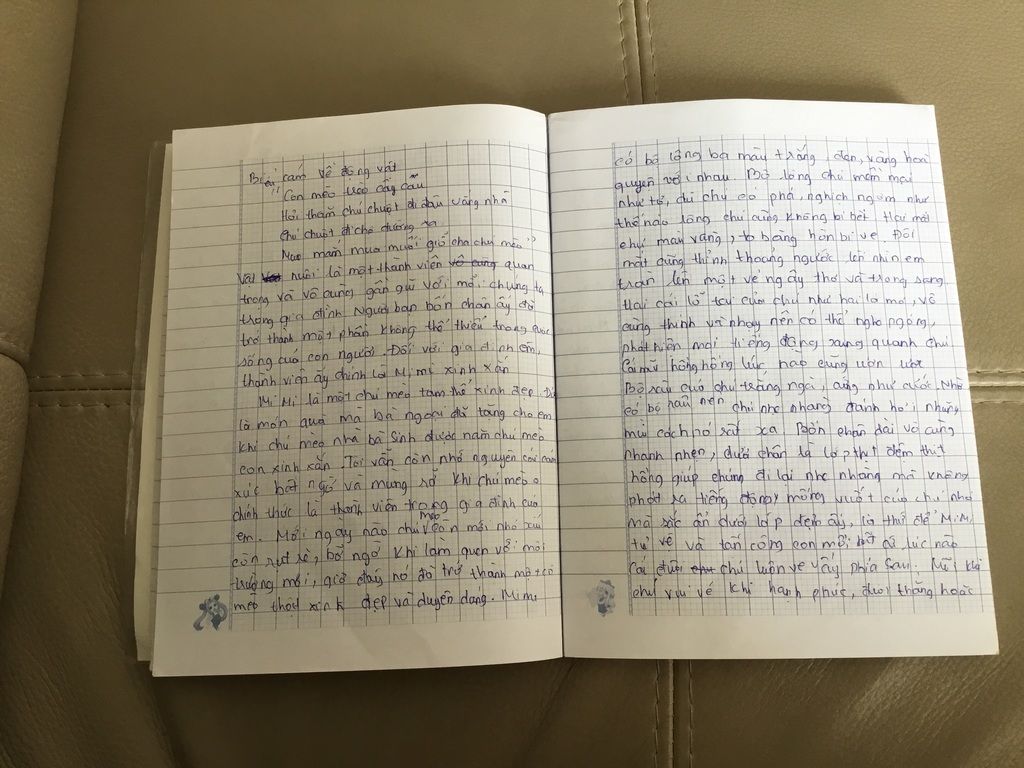 Biểu cảm về động vật
"Con mèo trèo cây cau
Hỏi thăm chú chuột đi đâu vắng nhà
Chú chuột đi chợ đường xa
Mua mắm mua muối giỗ cha chú mèo"
Vật nuôi là một thành viên vô cùng quan
trọng và vô cùng gần gũi với mỗi chúng ta
trong gia đình. Người bạn bốn chân ấy đã
trở thành một phần không thể thiếu trong cuộc
sống của con người. Đối với gia đình em,
thành viên ấy chính là Mi mi xinh xắn
Mi Mi là một chú mèo tam thể xinh đẹp. Đó
là món quà mà bà ngoại đã tặng cho em
khi chú mèo nhà bà sinh được năm chú mèo
con xinh xắn. Tôi vẫn còn nhớ nguyên cái cảm
xúc bất ngờ và mừng rỡ khi chú mèo
chính thức là thành viên trong gia đình của
em. Mới ngày nào chú mèo vẫn mới nhỏ xíu
còn rụt rè, bỡ ngỡ khi làm quen với môi
trường mới, giờ đây nó đã trở thành một cô
mèo thật xinh đẹp và duyên dáng. Mimi
có bộ lông ba màu trắng đen, vàng hoà
quyện với nhau. Bộ lông chú mềm mại
như tơ, dù chú có phá, nghịch ngợm như
thế nào lông chú cũng không bị bết. Hai mắt
chú màu vàng, to bằng hòn bi ve. Đôi
mắt cũng thỉnh thoảng ngước lên nhìn em
tràn lên một vẻ ngây thơ và trong sáng
Hai cái lỗ tai của chú như hai lá mơ, vô
cùng thính và nhạy nên có thể nghe ngóng,
phát hiện mọi tiếng động xung quanh chú
Cái mũi hồng hồng lúc nào cũng ươn ướt
Bộ râu của chú trắng ngà, cứng như cước. Nhờ
có bộ râu nên chú nhẹ nhàng đánh hơi những
mùi cách nó rất xa. Bốn chân dài vô cùng
nhanh nhẹn, dưới chân là lớp thịt đệm thịt
hồng giúp chúng đi lại nhẹ nhàng mà không
phát ra tiếng động, móng vuốt của chú nhỏ
mà sắc ẩn dưới lớp đệm ấy, là thứ để MiMi
tự vệ và tấn công con mồi bất cứ lúc nào
Cái đuôi chú luôn ve vẩy phía sau. Mỗi khi
chú vui vẻ khi hạnh phúc, đuôi thẳng hoặc